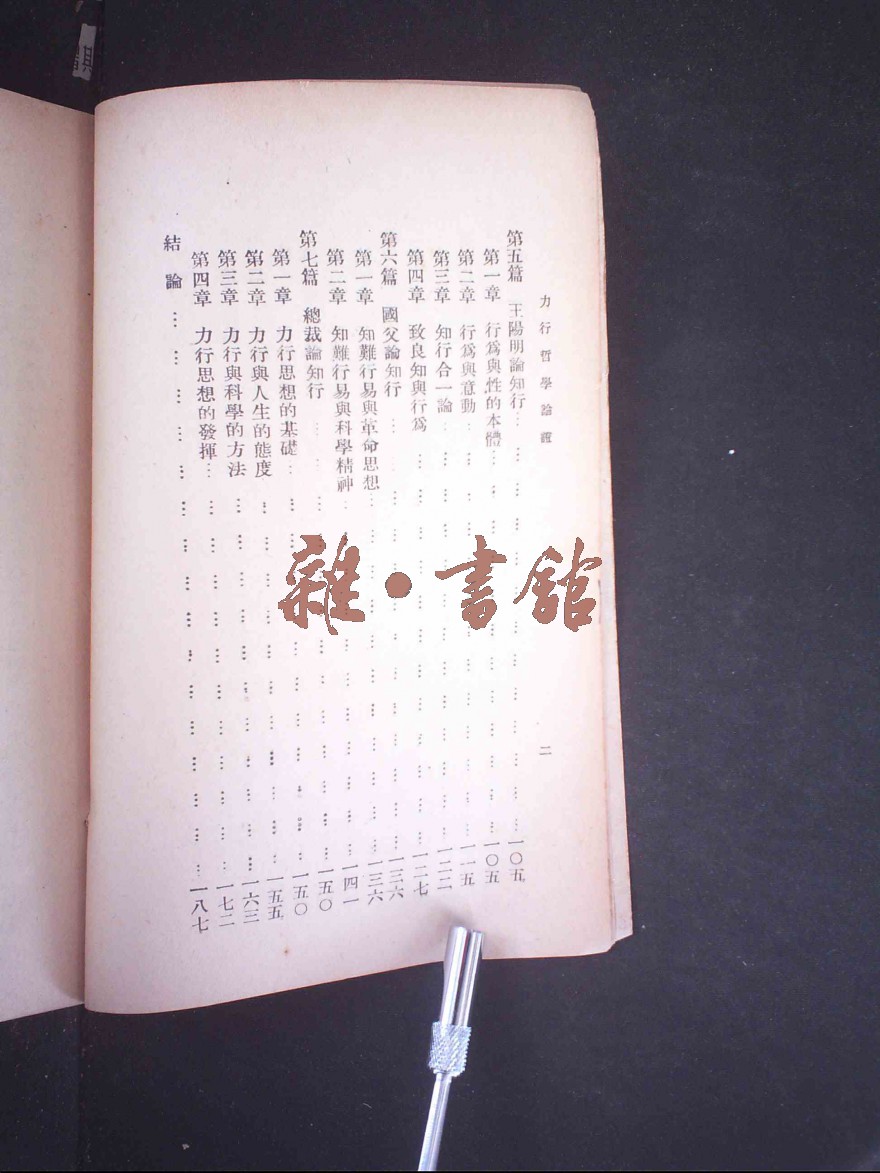 力行哲學論證 二
第五篇 王陽明論知行…………一〇五
第一章 行爲與性的本體…………一〇五
第二章 行爲與意動…………一一五
第三章 知行合一論…………一二二
第四章 致良知與行爲…………一二七
第六篇 國父論知行…………一三六
第一章 知難行易與革命思想…………一三六
第二章 知難行易與科學精神…………一四一
第七篇 總裁論知行…………一五〇
第一章 力行思想的基礎…………一五〇
第二章 力行與人生的態度…………一五五
第三章 力行與科學的方法…………一六三
第四章 力行思想的發揮…………一七二
結論…………一八七
雜·書館